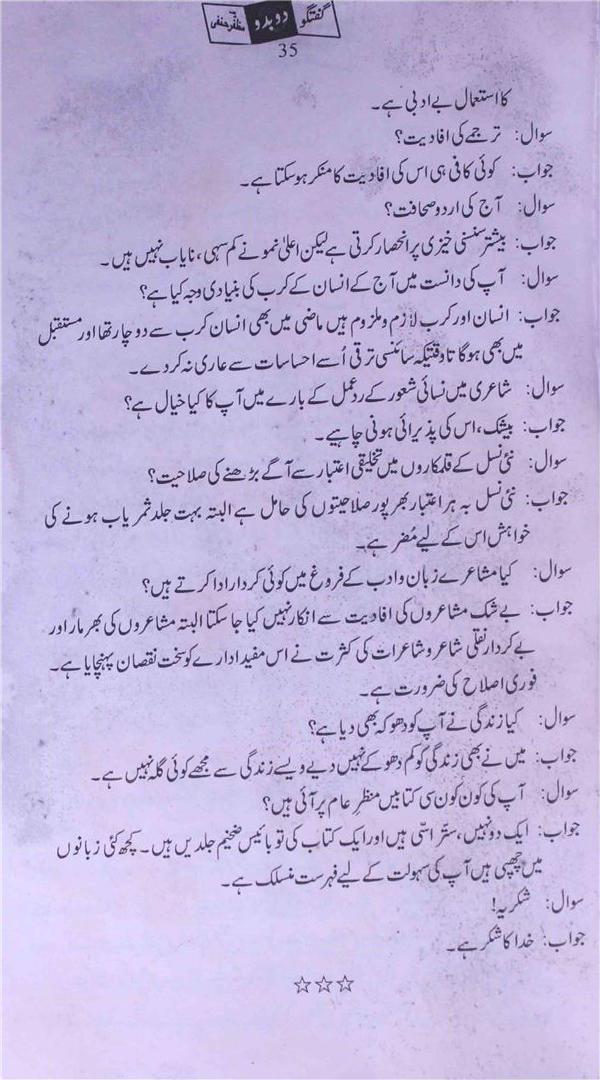 گفتگو دوبدو مظفر حنفی
35
کا استعمال بے ادبی ہے۔
سوال: ترجمے کی افادیت؟
جواب: کوئی کافی ہی اس کی افادیت کا منکر ہوسکتا ہے۔
سوال: آج کی اردو صحافت؟
جواب: بیشتر سنسنی خیزی پر انحصار کرتی ہے لیکن اعلیٰ نمونے کم سہی، نایاب نہیں ہیں۔
سوال: آپ کی دانست میں آج کے انسان کے کرب کی بنیادی وجہ کیا ہے؟
جواب: انسان اور کرب لازم و ملزوم ہیں ماضی میں بھی انسان کرب سے دوچار تھا اور مستقبل
میں بھی ہوگا تاوقتیکہ سائنسی ترقی اُسے احساسات سے عاری نہ کردے۔
سوال: شاعری میں نسائی شعور کے ردعمل کے بارے میں آپ کا کیا خیال ہے؟
جواب: بیشک، اس کی پذیرائی ہونی چاہیے۔
سوال: نئی نسل کے قلمکاروں میں تخلیقی اعتبار سے آگے بڑھنے کی صلاحیت؟
جواب: نئی نسل بہ ہر اعتبار بھرپور صلاحیتوں کی حامل ہے البتہ بہت جلد ثمر یاب ہونے کی
خواہش اس کے لیے مُضر ہے۔
سوال: کیا مشاعرے زبان و ادب کے فروغ میں کوئی کردار ادا کرتے ہیں؟
جواب: بے شک مشاعروں کی افادیت سے انکار نہیں کیا جاسکتا البتہ مشاعروں کی بھرمار اور
بے کردار نقلی شاعر و شاعرات کی کثرت نے اس مفید ادارے کو سخت نقصان پہنچایا ہے۔
فوری اصلاح کی ضرورت ہے۔
سوال: کیا زندگی نے آپ کو دھوکہ بھی دیا ہے؟
جواب: میں نے بھی زندگی کو کم دھوکے نہیں دیے ویسے زندگی سے مجھے کوئی گلہ نہیں ہے۔
سوال: آپ کی کون کون سی کتابیں منظرِ عام پر آئی ہیں؟
جواب: ایک دو نہیں، ستّر اسّی ہیں اور ایک کتاب کی تو بائیس ضخیم جلدیں ہیں۔ کچھ کئی زبانوں
میں چھپی ہیں آپ کی سہولت کے لیے فہرست منسلک ہے۔
سوال: شکریہ!
جواب: خدا کا شکر ہے۔
☆☆☆